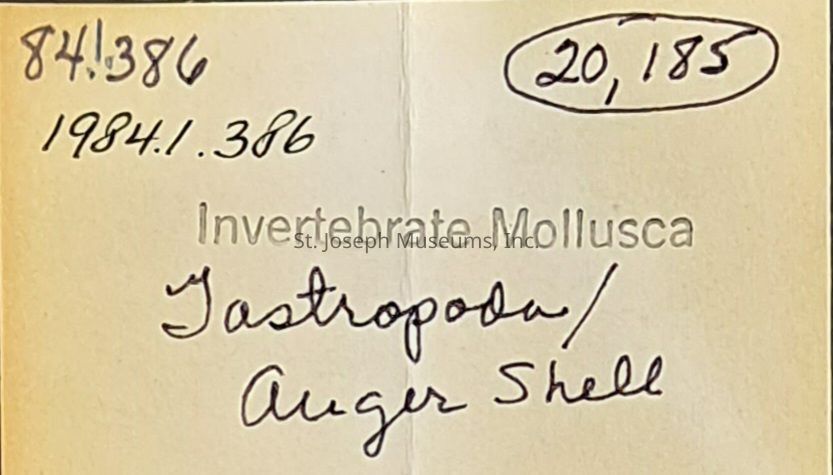 84.1.386
20,185
1984.1.386
Invertebrate Mollusca
St. Joseph Museums, Inc.
Gastropoda/
Auger Shell